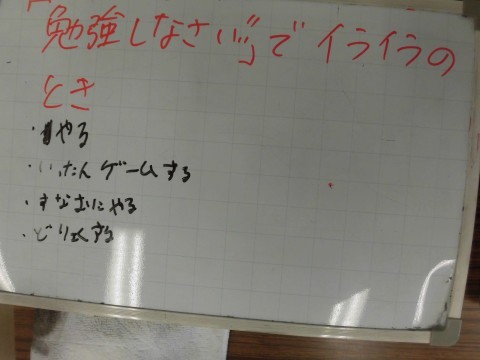 「勉強しなさい!!」でイライラの
とき
・やる
・いったんゲームする
・すなおにやる
・どりょくする